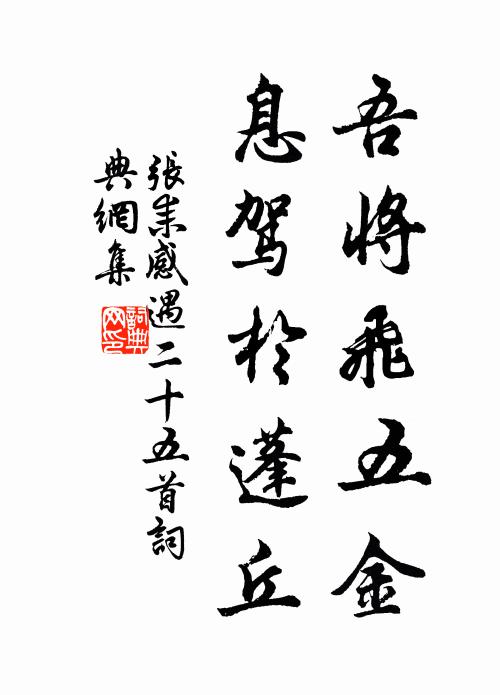 吾將飛五金
息駕於蓬丘
張耒感遇二十五首詞
典網集
詞典
网印